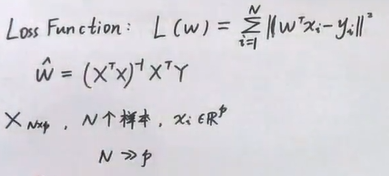 Loss Function: L(w) = Σ_{i=1}^{N} ||wᵀxᵢ - yᵢ||²
ŵ = (XᵀX)⁻¹XᵀY
X_{N×p}, N个样本, xᵢ∈ℝᵖ
N ≫ p